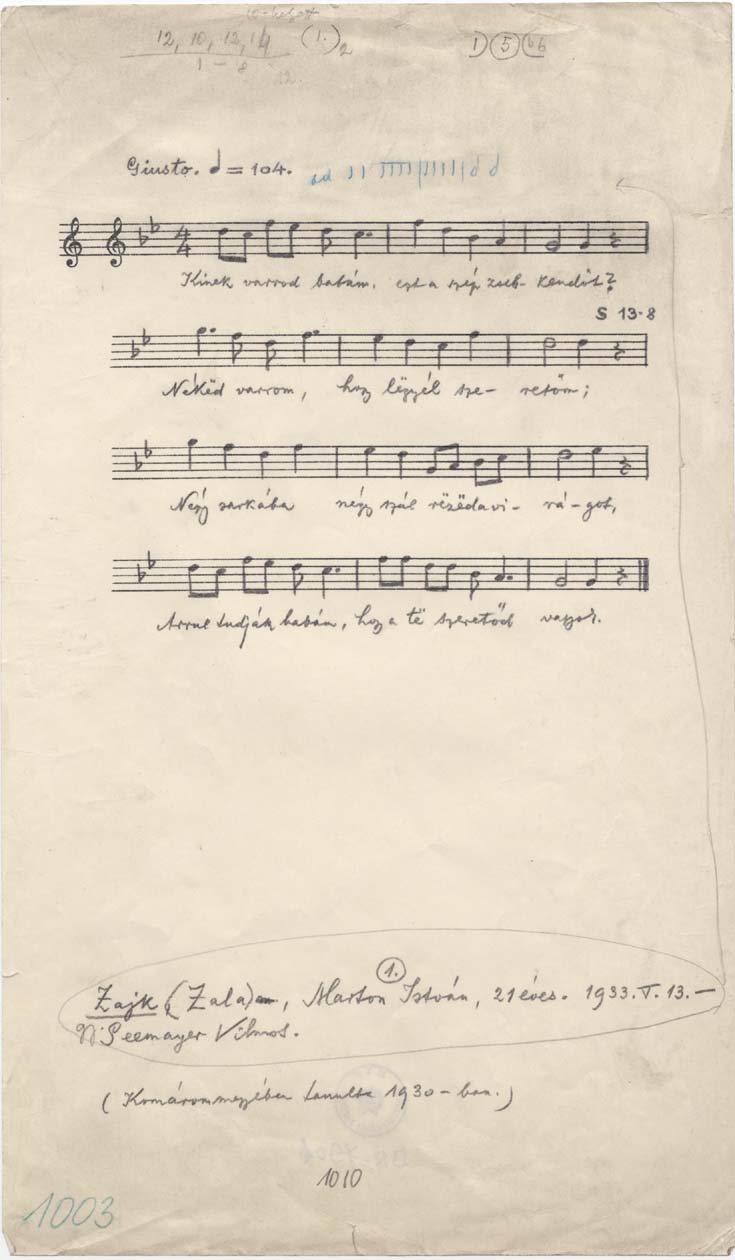 12, 10, 12, 14 (1.)2 I) 5 b6
1 – 8
12.
Giusto. = 104.
4
4
Kinek varrod babám, ezt a szép zseb- kendőt?
S 13-8
Nékëd varrom, hogy lëgyél sze- retőm;
Négy sarkába négy szál rëzëdavi- rá-got,
Arrul tudják babám, hogy a të szeretőd vagyok.
1.
Zajk (Zala), Marton István, 21 éves. 1933. V. 13.—
Seemayer Vilmos.
(Komárommegyében tanulta 1930-ban.)
1010
1003